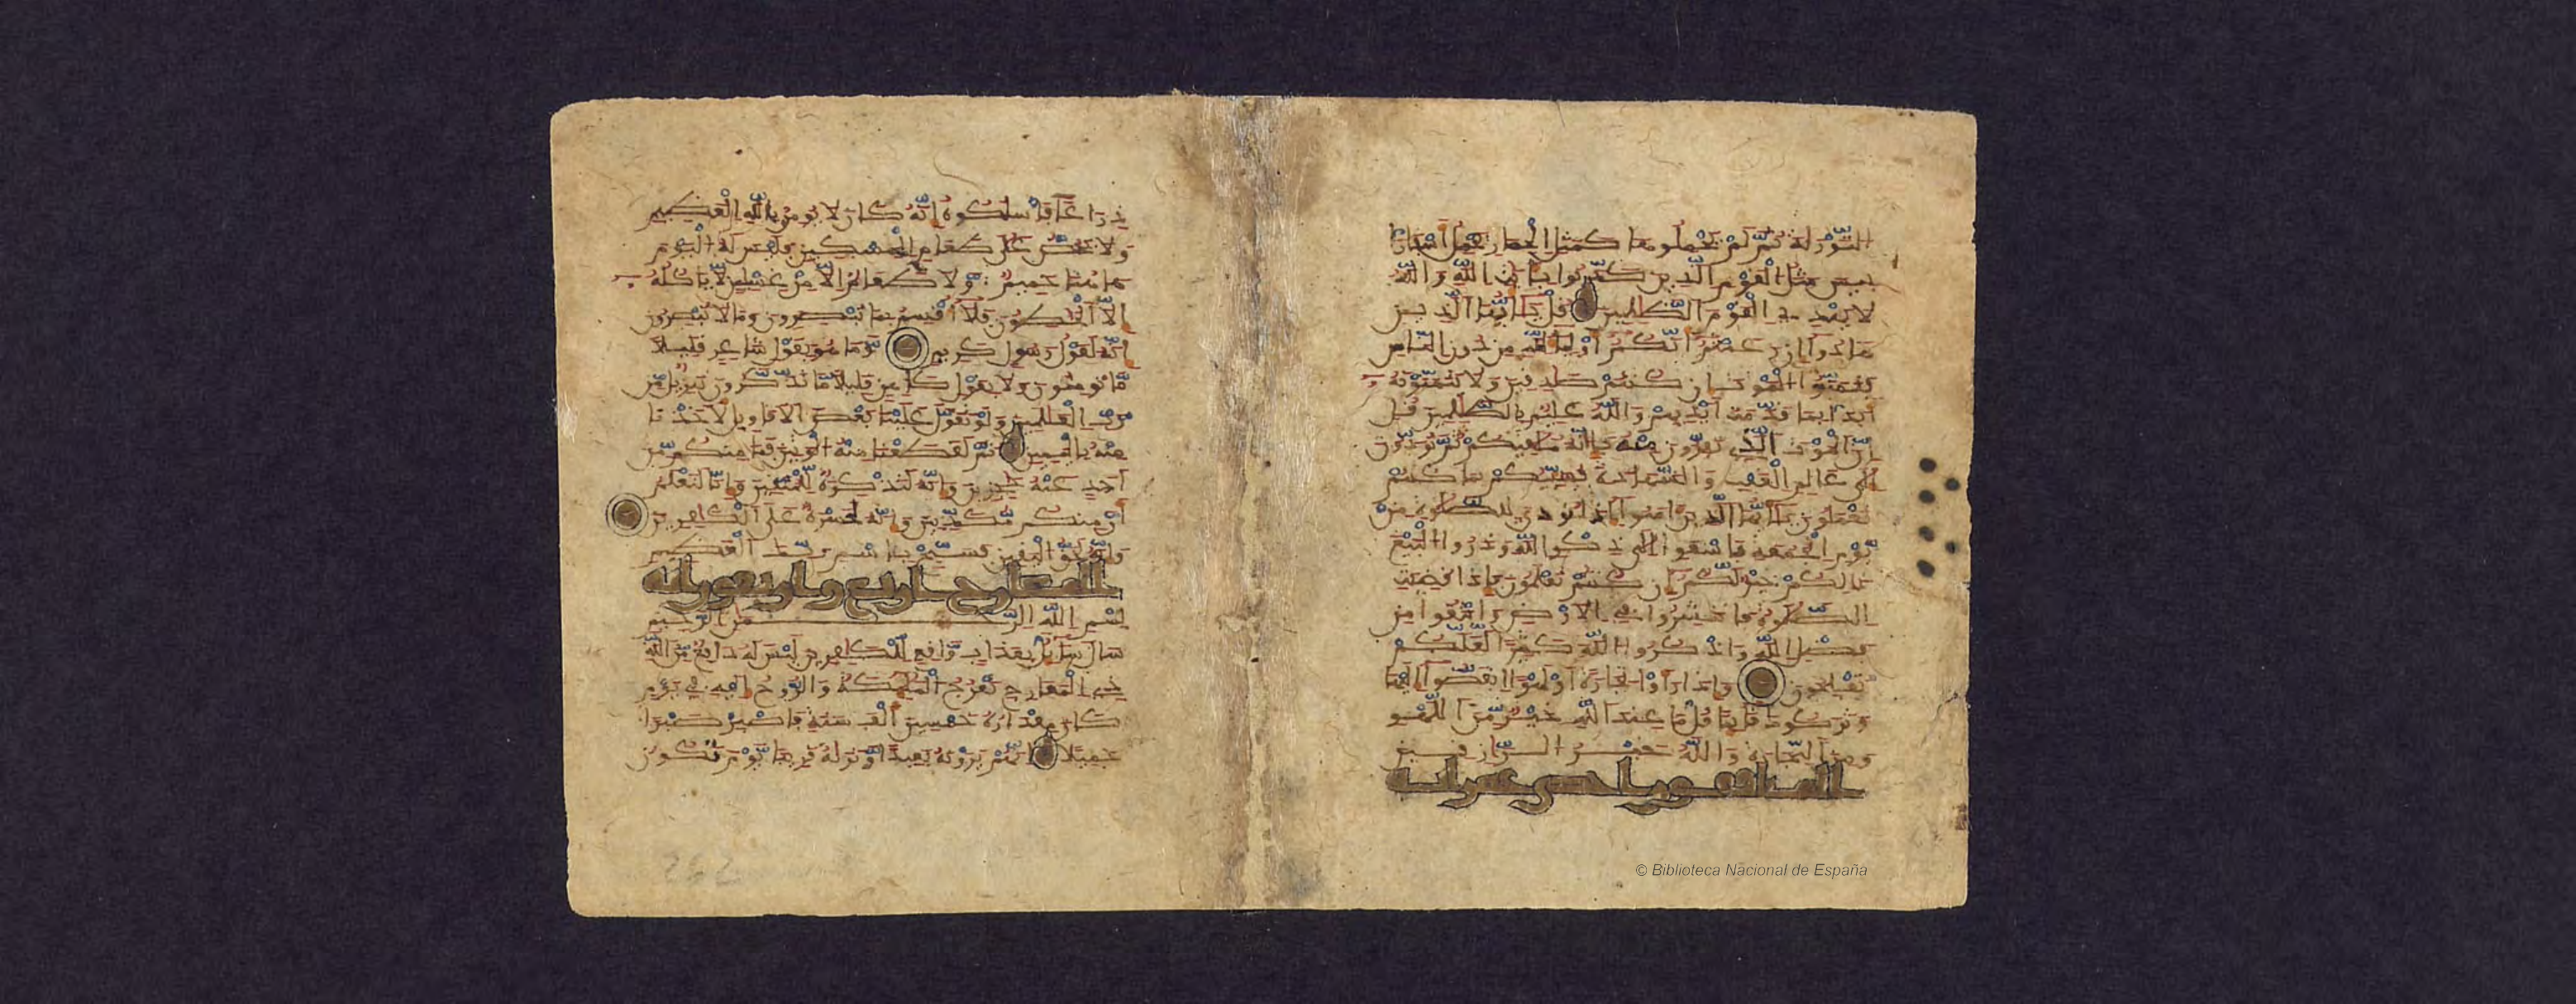 التَّوْرَىٰةَ ثُمَّ لَمْ يَحْمِلُوهَا كَمَثَلِ الْحِمَارِ يَحْمِلُ أَسْفَارًا
بِيسَ مَثَلُ الْقَوْمِ الَّذِينَ كَذَّبُوا بِـَٔايَٰتِ اللَّهِ وَاللَّهُ
لَا يَهْدِي الْقَوْمَ الظَّٰلِمِينَ قُلْ يَٰٓأَيُّهَا الَّذِينَ
هَادُوٓا إِن زَعَمْتُمْ أَنَّكُمْ أَوْلِيَآءُ لِلَّهِ مِن دُونِ النَّاسِ
فَتَمَنَّوُا الْمَوْتَ إِن كُنتُمْ صَٰدِقِينَ وَلَا يَتَمَنَّوْنَهُ
أَبَدًا بِمَا قَدَّمَتْ أَيْدِيهِمْ وَاللَّهُ عَلِيمٌ بِالظَّٰلِمِينَ قُلْ
إِنَّ الْمَوْتَ الَّذِي تَفِرُّونَ مِنْهُ فَإِنَّهُ مُلَٰقِيكُمْ ثُمَّ تُرَدُّونَ
إِلَىٰ عَٰلِمِ الْغَيْبِ وَالشَّهَٰدَةِ فَيُنَبِّئُكُم بِمَا كُنتُمْ
تَعْمَلُونَ يَٰٓأَيُّهَا الَّذِينَ ءَامَنُوٓا إِذَا نُودِيَ لِلصَّلَوٰةِ مِنْ
يَوْمِ الْجُمُعَةِ فَاسْعَوْا إِلَىٰ ذِكْرِ اللَّهِ وَذَرُوا الْبَيْعَ
ذَٰلِكُمْ خَيْرٌ لَّكُمْ إِن كُنتُمْ تَعْلَمُونَ فَإِذَا قُضِيَتِ
الصَّلَوٰةُ فَانتَشِرُوا فِي الْأَرْضِ وَابْتَغُوا مِن
فَضْلِ اللَّهِ وَاذْكُرُوا اللَّهَ كَثِيرًا لَّعَلَّكُمْ
تُفْلِحُونَ وَإِذَا رَأَوْا تِجَٰرَةً أَوْ لَهْوًا انفَضُّوٓا إِلَيْهَا
وَتَرَكُوكَ قَآئِمًا قُلْ مَا عِندَ اللَّهِ خَيْرٌ مِّنَ اللَّهْوِ
وَمِنَ التِّجَٰرَةِ وَاللَّهُ خَيْرُ الرَّٰزِقِينَ
المنافقون احدى عشر اية
© Biblioteca Nacional de España
ذِرَاعًا فَاسْلُكُوهُ إِنَّهُ كَانَ لَا يُومِنُ بِاللَّهِ الْعَظِيمِ
وَلَا يَحُضُّ عَلَىٰ طَعَامِ الْمِسْكِينِ فَلَيْسَ لَهُ الْيَوْمَ
هَٰهُنَا حَمِيمٌ وَلَا طَعَامٌ إِلَّا مِنْ غِسْلِينٍ لَّا يَاكُلُهُ
إِلَّا الْخَٰطِـُٔونَ فَلَآ أُقْسِمُ بِمَا تُبْصِرُونَ وَمَا لَا تُبْصِرُونَ
إِنَّهُ لَقَوْلُ رَسُولٍ كَرِيمٍ وَمَا هُوَ بِقَوْلِ شَاعِرٍ قَلِيلًا
مَّا تُومِنُونَ وَلَا بِقَوْلِ كَاهِنٍ قَلِيلًا مَّا تَذَّكَّرُونَ تَنزِيلٌ مِّن
رَّبِّ الْعَٰلَمِينَ وَلَوْ تَقَوَّلَ عَلَيْنَا بَعْضَ الْأَقَاوِيلِ لَأَخَذْنَا
مِنْهُ بِالْيَمِينِ ثُمَّ لَقَطَعْنَا مِنْهُ الْوَتِينَ فَمَا مِنكُم مِّنْ
أَحَدٍ عَنْهُ حَٰجِزِينَ وَإِنَّهُ لَتَذْكِرَةٌ لِّلْمُتَّقِينَ وَإِنَّا لَنَعْلَمُ
أَنَّ مِنكُم مُّكَذِّبِينَ وَإِنَّهُ لَحَسْرَةٌ عَلَى الْكَٰفِرِينَ
وَإِنَّهُ لَحَقُّ الْيَقِينِ فَسَبِّحْ بِاسْمِ رَبِّكَ الْعَظِيمِ
المعارج اربع واربعون اية
بِسْمِ اللَّهِ الرَّحْمَٰنِ الرَّحِيمِ
سَالَ سَآئِلٌ بِعَذَابٍ وَاقِعٍ لِّلْكَٰفِرِينَ لَيْسَ لَهُ دَافِعٌ مِّنَ اللَّهِ
ذِي الْمَعَارِجِ تَعْرُجُ الْمَلَٰٓئِكَةُ وَالرُّوحُ إِلَيْهِ فِي يَوْمٍ
كَانَ مِقْدَارُهُ خَمْسِينَ أَلْفَ سَنَةٍ فَاصْبِرْ صَبْرًا
جَمِيلًا إِنَّهُمْ يَرَوْنَهُ بَعِيدًا وَنَرَىٰهُ قَرِيبًا يَوْمَ تَكُونُ
262